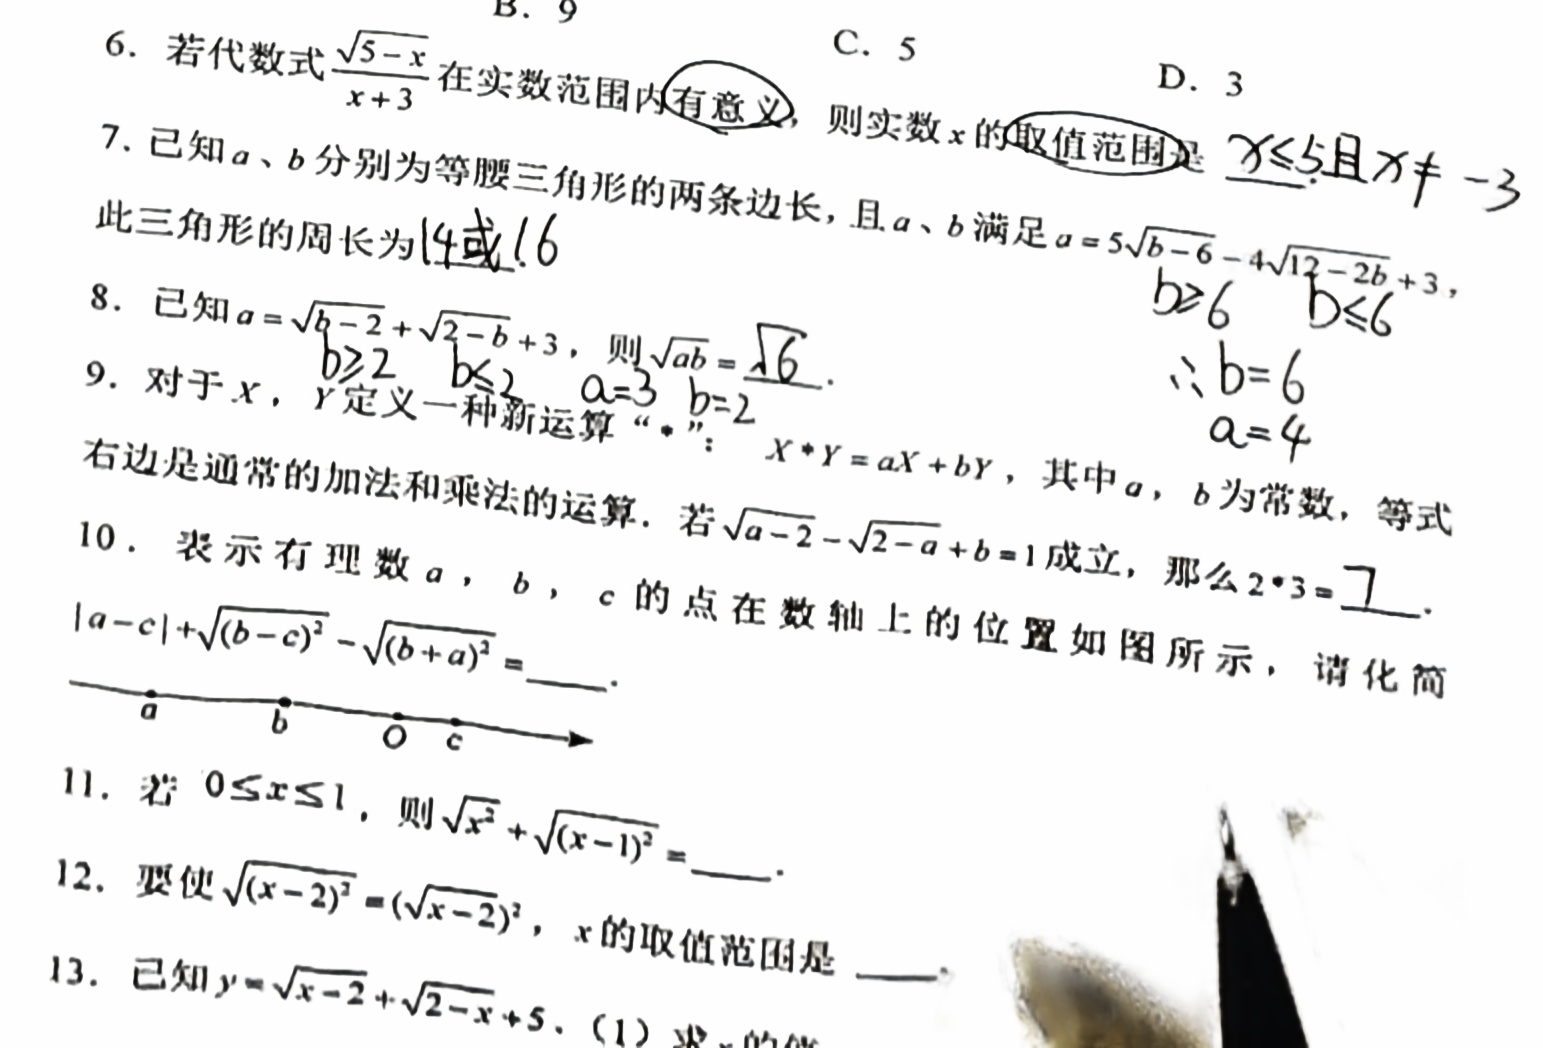 B. 9
C. 5
D. 3
6. 若代数式 √(5-x)/(x+3) 在实数范围内有意义，则实数 x 的取值范围是 x≤5且x≠-3
7. 已知 a、b 分别为等腰三角形的两条边长，且 a、b 满足 a=5√(b-6)-4√(12-2b)+3，
b≥6 b≤6
此三角形的周长为14或16
∴b=6
a=4
8. 已知 a=√(b-2)+√(2-b)+3，则√(ab)=√6.
b≥2 b≤2 a=3 b=2
9. 对于 X，Y 定义一种新运算“*”：X*Y=aX+bY，其中 a，b 为常数，等式
右边是通常的加法和乘法的运算．若√(a-2)-√(2-a)+b=1成立，那么 2*3=7.
10. 表示有理数 a，b，c 的点在数轴上的位置如图所示，请化简
|a-c|+√((b-c)²)-√((b+a)²)=____.
a b O c
11. 若 0≤x≤1，则√(x²)+√((x-1)²)=____.
12. 要使√((x-2)²)=(√(x-2))²，x 的取值范围是 ____.
13. 已知 y=√(x-2)+√(2-x)+5．（1）求 x 的值